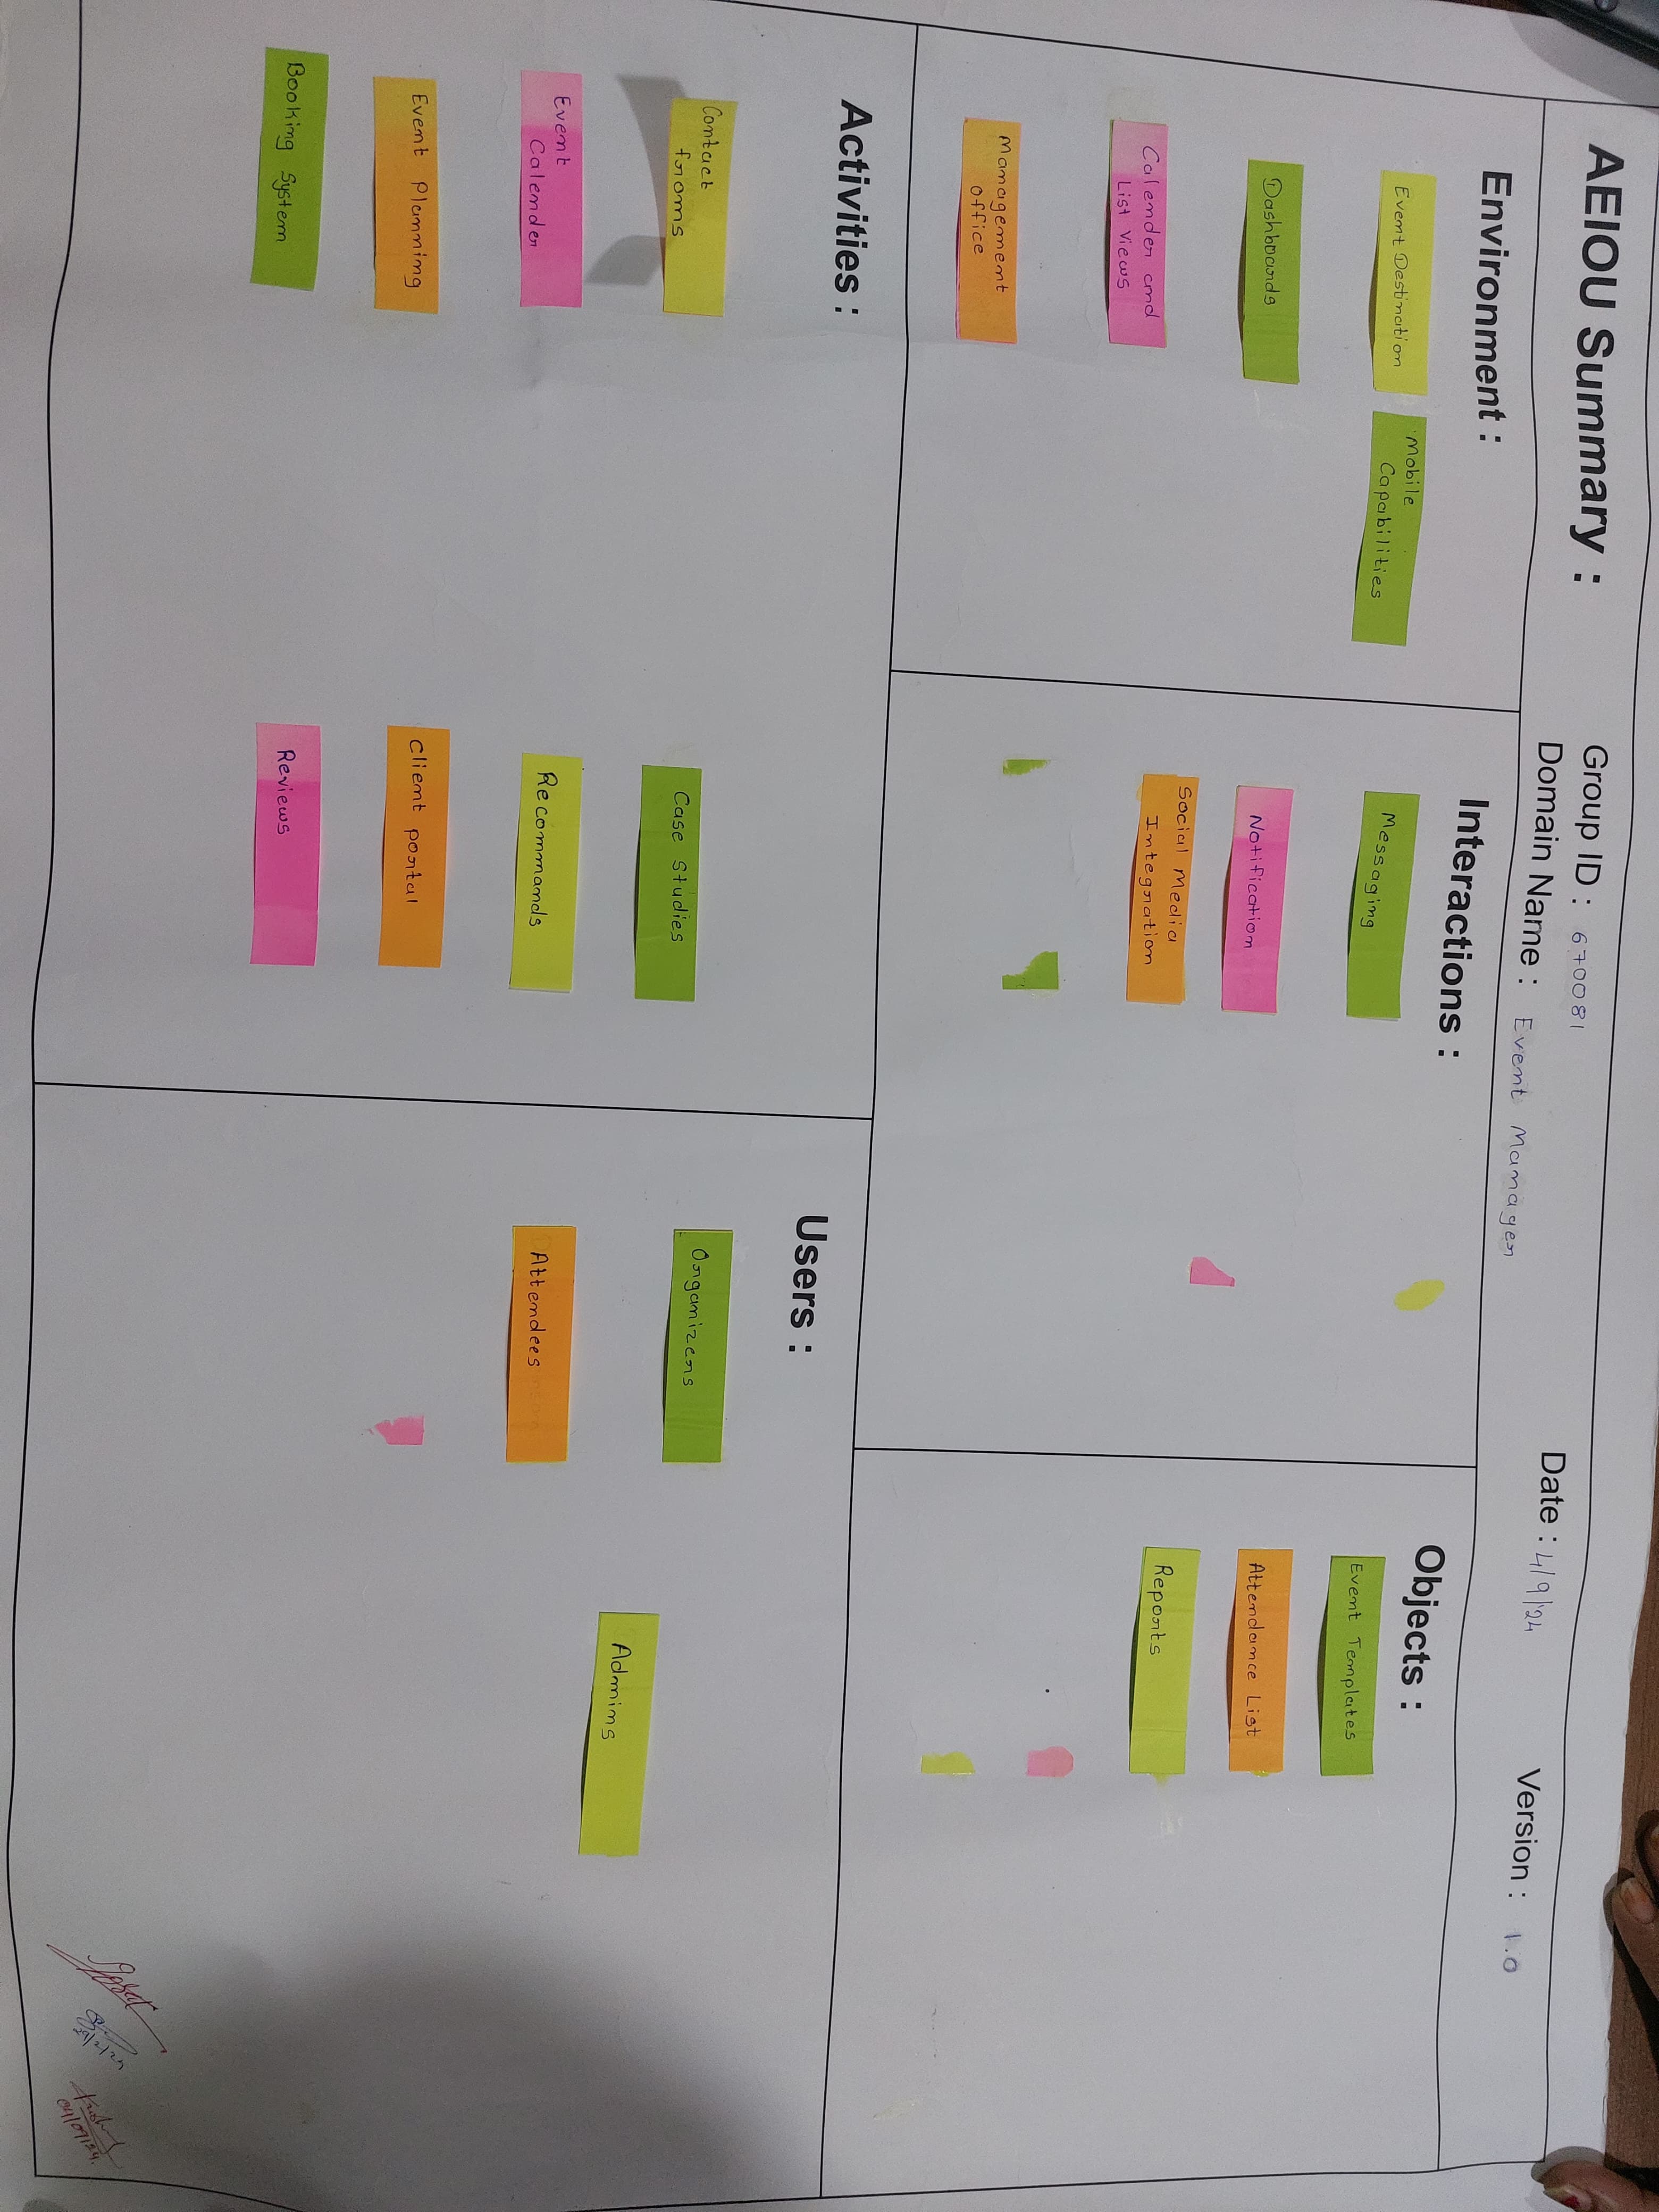 AEIOU Summary :
Group ID : 670081
Date : 4/9/24
Version : 1.0
Domain Name : Event Manager
Environment :
Event Destination
Mobile
Capabilities
Dashboards
Calender and
List Views
Management
Office
Interactions :
Messaging
Notification
Social Media
Integration
Objects :
Event Templates
Attendance List
Reports
Activities :
Contact
forms
Event
Calender
Event planning
Booking System
Case Studies
Recommands
Client portal
Reviews
Users :
Organizers
Attendees
Admins
04/09/24.